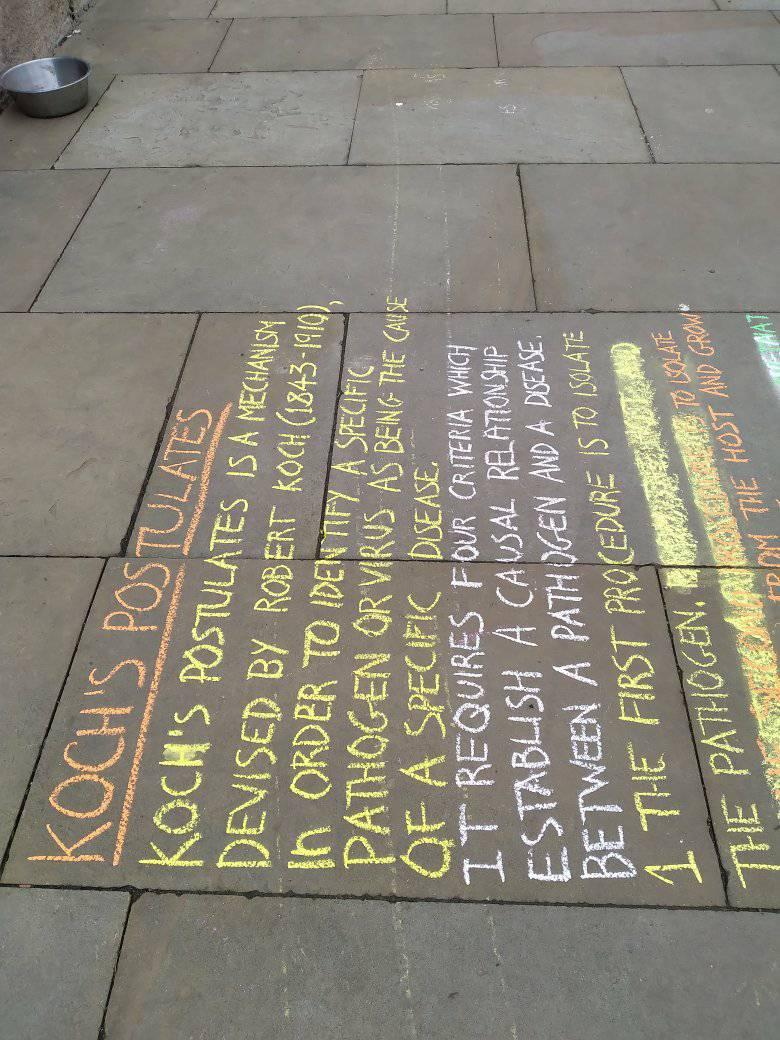 KOCH'S POSTULATES
KOCH'S POSTULATES IS A MECHANISM
DEVISED BY ROBERT KOCH (1843-1910),
In ORDER TO IDENTIFY A SPECIFIC
PATHOGEN OR VIRUS AS BEING THE CAUSE
OF A SPECIFIC DISEASE.
IT REQUIRES FOUR CRITERIA WHICH
ESTABLISH A CAUSAL RELATIONSHIP
BETWEEN A PATHOGEN AND A DISEASE.
1 THE FIRST PROCEDURE IS TO ISOLATE
THE PATHOGEN.
TO ISOLATE
FROM THE HOST AND GROW
THAT